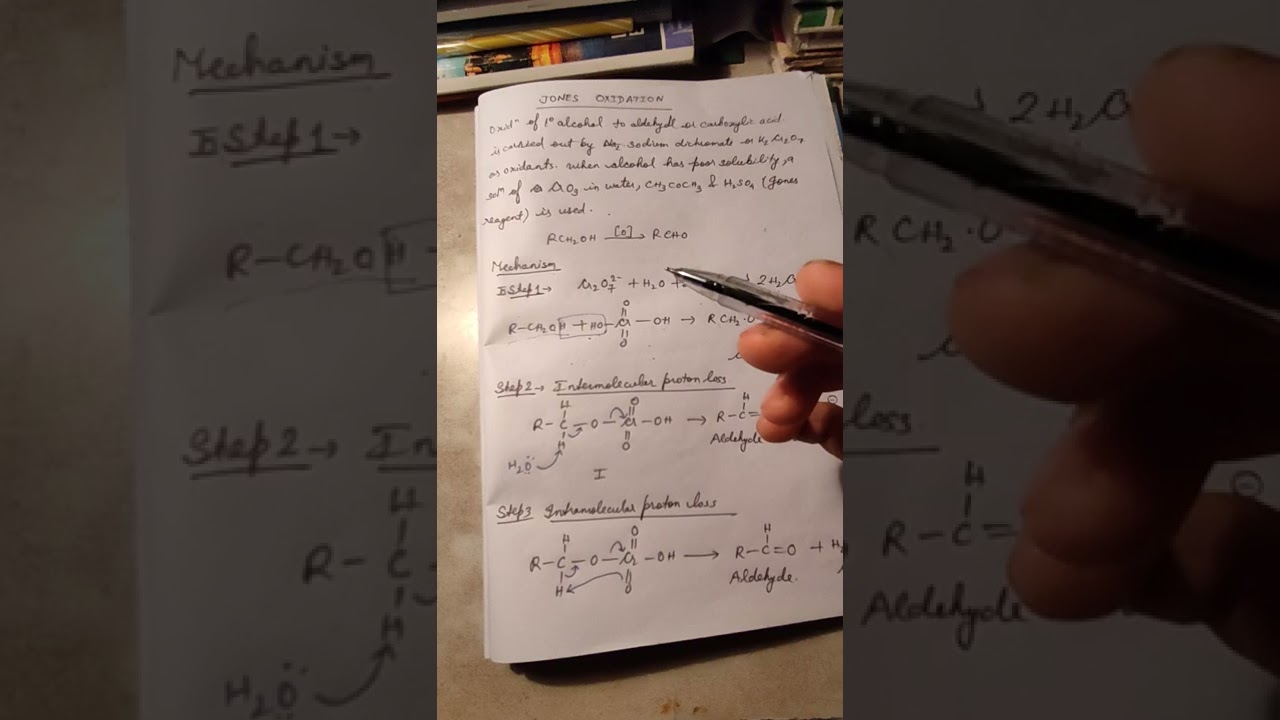 JONES OXIDATION
Oxidⁿ of 1° alcohol to aldehyde or carboxylic acid
is carried out by Na₂ sodium dichromate or K₂Cr₂O₇
as oxidants. When alcohol has poor solubility, a
solⁿ of CrO₃ in water, CH₃COCH₃ & H₂SO₄ (Jones
reagent) is used.
RCH₂OH [O]→ RCHO
Mechanism
Step 1→ Cr₂O₇²⁻ + H₂O + → 2H₂C
R-CH₂OH + HO-Cr-OH → RCH₂·O
O
O
Step 2→ Intermolecular proton loss
H O H
R-C-O-Cr-OH → R-C=
H O Aldehyde
H₂Ö
I
Step 3 Intramolecular proton loss
H O H
R-C-O-Cr-OH → R-C=O + H₂
H O Aldehyde.
Mechanism
Step 1→
R-CH₂OH
Step 2→ In
H
R-C
H
H₂Ö
2H₂C
R CH₂·O
loss
H
R-C=
Aldehyde